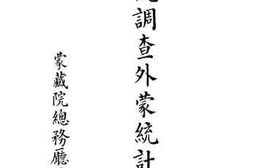 調查外蒙統計
蒙藏院總務廳